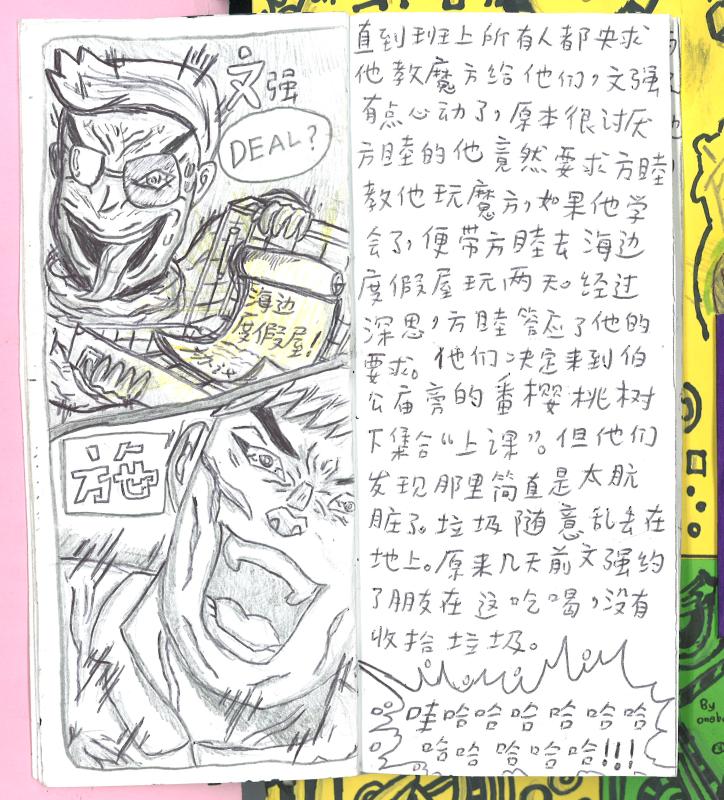 文强
DEALˀ?
海边
度假屋!
方睦
直到班上所有人都央求
他教魔方给他们，文强
有点心动了，原本很讨厌
方睦的他竟然要求方睦
教他玩魔方，如果他学
会了，便带方睦去海边
度假屋玩两天。经过
深思，方睦答应了他的
要求。他们决定来到伯
公庙旁的番樱桃树
下集合“上课”。但他们
发现那里简直是太肮
脏了。垃圾随意乱丢在
地上。原来几天前文强约
了朋友在这吃喝，没有
收拾垃圾。
哇哈哈哈哈哈哈
哈哈哈哈哈!!!
By